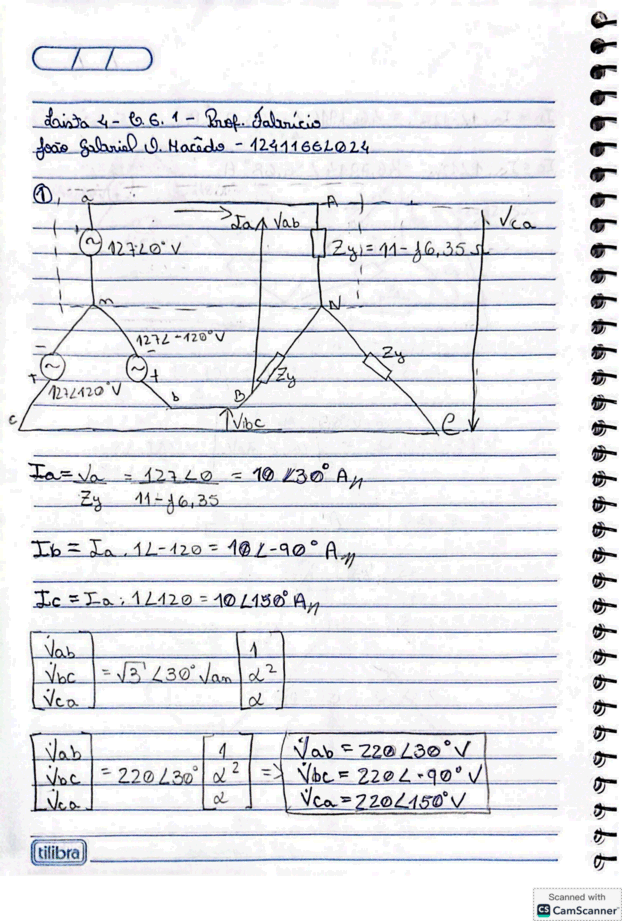 Lista 4 - C.E. 1 - Prof. Fabrício
João Gabriel O. Macêdo - 12411EEL024
① a A
Ia Vab Vca
127∠0° V Zy = 11 - j6,35 Ω
n N
127∠-120° V
- - Zy Zy
+ +
127∠120° V
b B
c Vbc C
Ia = Va/Zy = 127∠0/11-j6,35 = 10∠30° A//
Ib = Ia . 1∠-120 = 10∠-90° A//
Ic = Ia . 1∠120 = 10∠150° A//
[V̇ab V̇bc V̇ca] = √3 ∠30° V̇an [1 α² α]
[V̇ab V̇bc V̇ca] = 220∠30° [1 α² α] =>
V̇ab = 220∠30° V
V̇bc = 220∠-90° V
V̇ca = 220∠150° V
tilibra
Scanned with
CS CamScanner